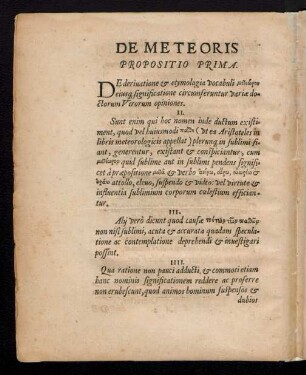 DE METEORIS
PROPOSITIO PRIMA.
DE deriuatione & etymologia vocabuli
eiusq; significatione circumferuntur variæ do-
ctorum Virorum opiniones.
II.
Sunt enim qui hoc nomen inde ductum existi-
ment, quod vel huiusmodi (vt ea Aristoteles in
libris meteorologicis appellat) plerunq; in sublimi fi-
ant, generentur, existant & conspiciantur, cum
quid sublime aut in sublimi pendens signifi-
cet à præpositione & verbo
attollo, eleuo, suspendo & video: vel virtute &
influentia sublimium corporum cælestium effician-
tur.
III.
Alij verò dicunt quod causæ
non nisi sublimi, acuta & accurata quadam specula-
tione ac contemplatione deprehendi & inuestigari
possint.
IIII.
Qua ratione non pauci adducti, & commoti etiam
hanc nominis significationem reddere ac proferre
non erubescunt, quod animos hominum suspensos &
dubios